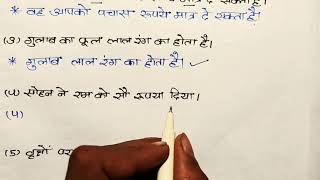 * वह आपको पचास रूपये मात्र दे सकता है।
(3) गुलाब का फूल लाल रंग का होता है।
* गुलाब लाल रंग का होता है।
(4) सोहन ने राम को सौ रूपया दिया।
(4)
(5) वृक्षों पर